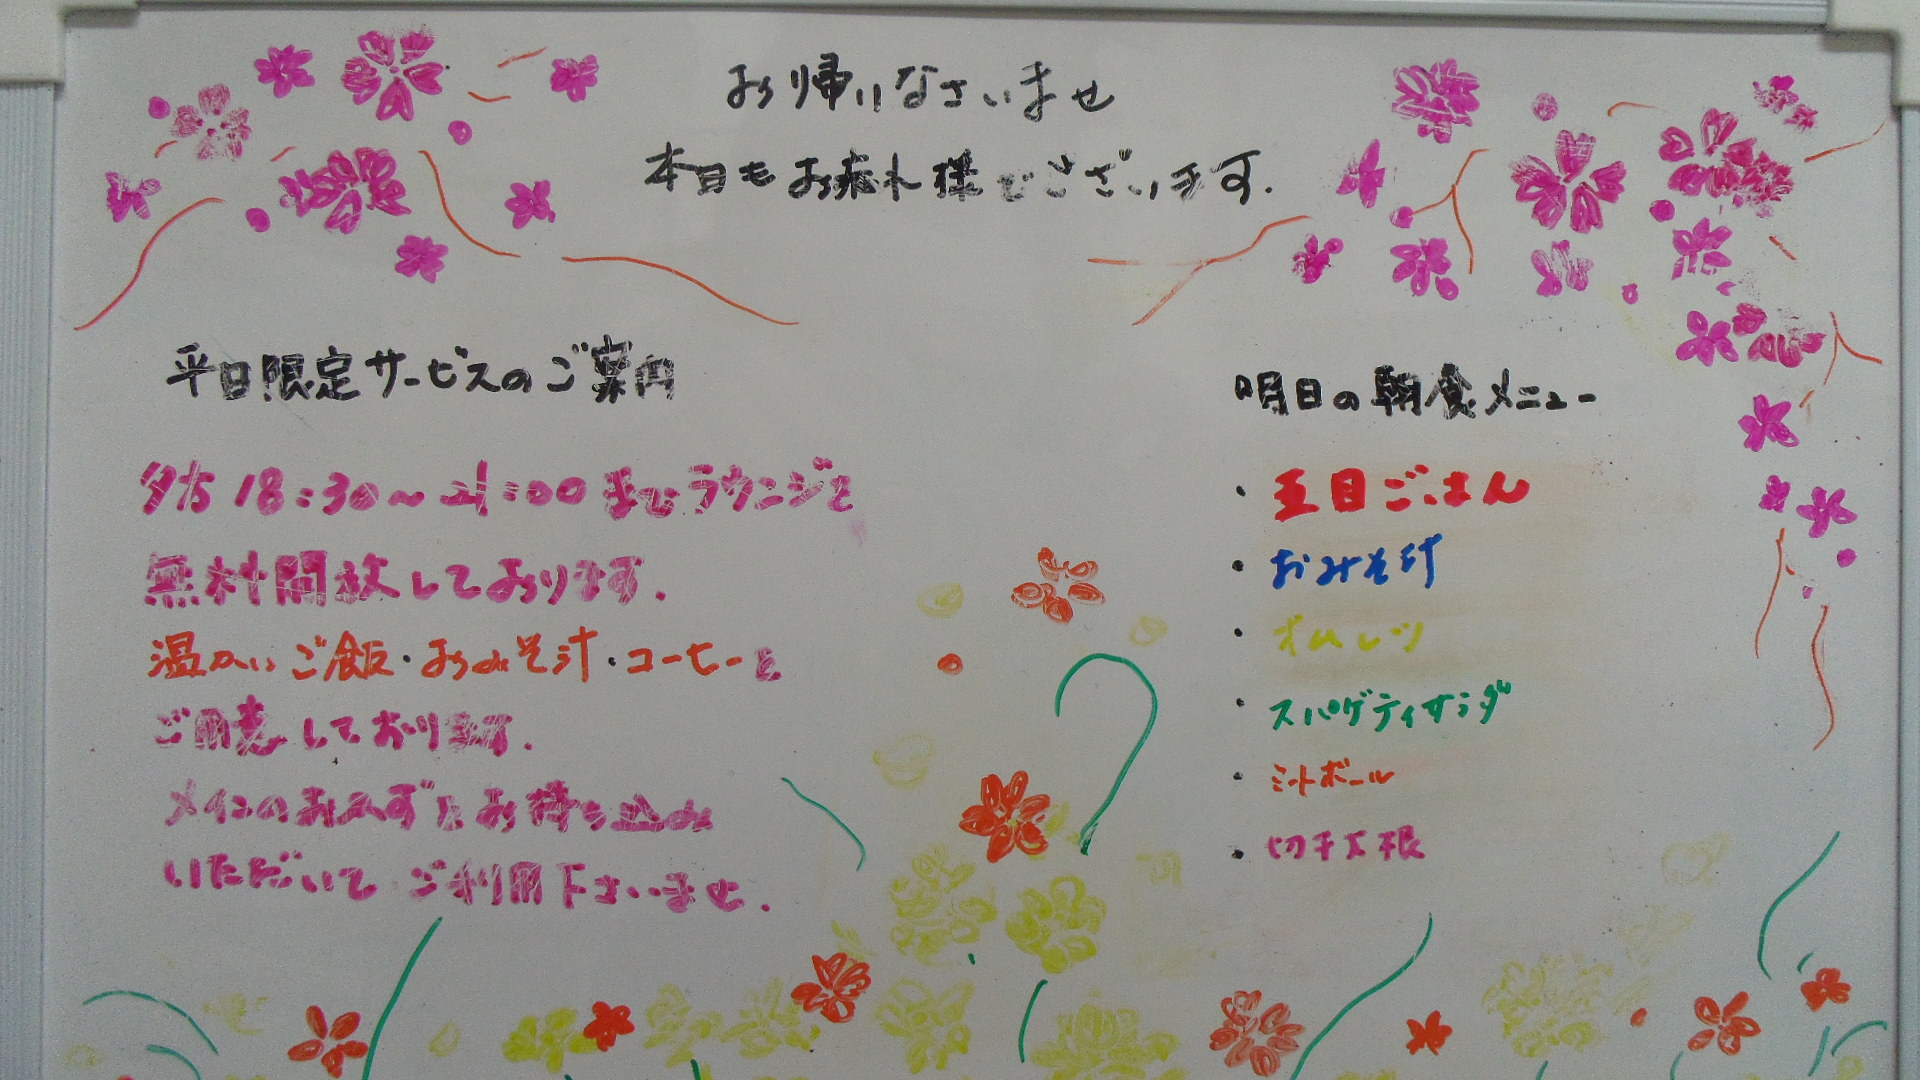 お帰りなさいませ
本日もお疲れ様でございます.
平日限定サービスのご案内
夕方 18:30~21:00までラウンジを
無料開放しております.
温かい ご飯・おみそ汁・コーヒーを
ご用意しております.
メインのおかずをお持ち込み
いただいて ご利用下さいませ.
明日の朝食メニュー
・五目ごはん
・おみそ汁
・オムレツ
・スパゲティサラダ
・ミートボール
・切干大根